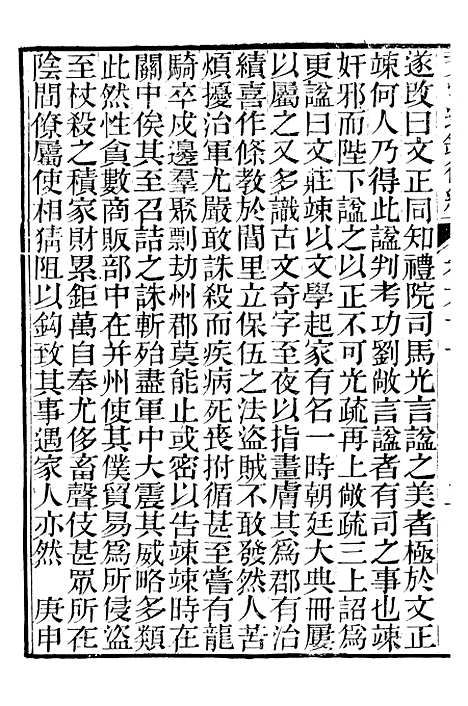 遂改曰文正同知禮院司馬光言諡之美者極於文正
竦何人乃得此諡判考功劉敞言諡者有司之事也竦
奸邪而陛下諡之以正不可光疏再上敞疏三上詔爲
更諡曰文莊竦以文學起家有名一時朝廷大典冊屢
以屬之又多識古文奇字至夜以指畫膚其爲郡有治
績喜作條教於閭里立保伍之法盜賊不敢發然人苦
煩擾治軍尤嚴敢誅殺而疾病死喪拊循甚至嘗有龍
騎卒戍邊羣聚剽劫州郡莫能止或密以告竦竦時在
關中俟其至召詰之誅斬殆盡軍中大震其威略多類
此然性貪數商販部中在并州使其僕貿易爲所侵盜
至杖殺之積家財累鉅萬自奉尤侈畜聲伎甚眾所在
陰間僚屬使相猜阻以鈎致其事遇家人亦然　庚申